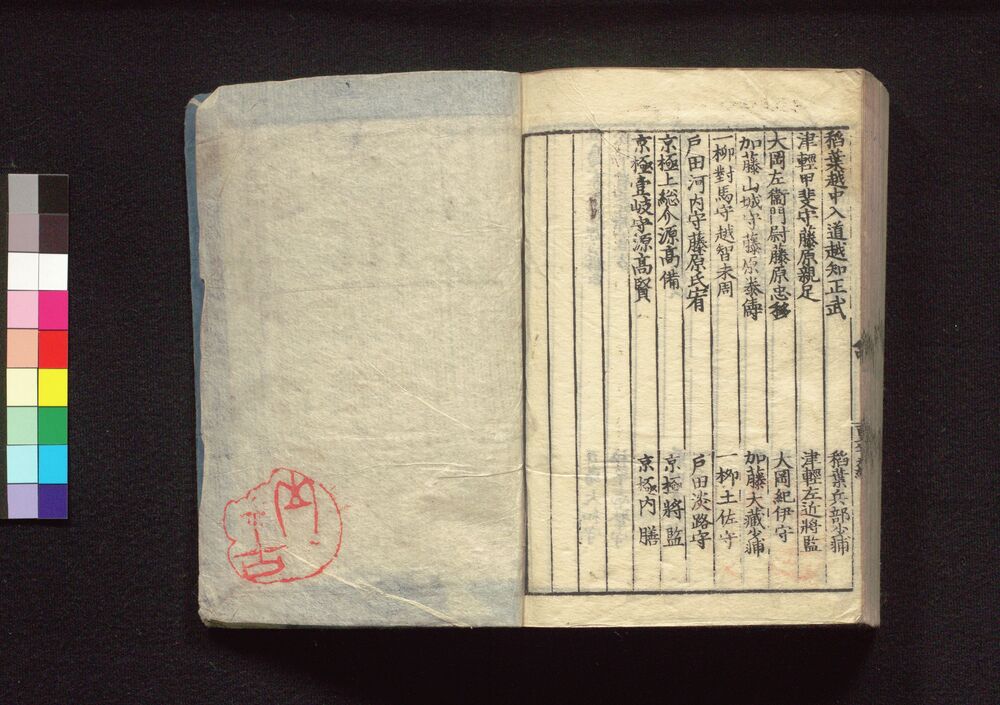 稻葉越中入道越知正武
稻葉兵部少輔
津輕甲斐守藤原親足
津輕左近將監
大岡左衞門尉藤原忠移
大岡紀伊守
加藤山城守藤原泰儔
加藤大藏少輔
一柳對馬守越智末周
一柳土佐守
戸田河内守藤原氏宥
戸田淡路守
京極上総介源高備
京極將監
京極壹岐守源高賢
京極内膳